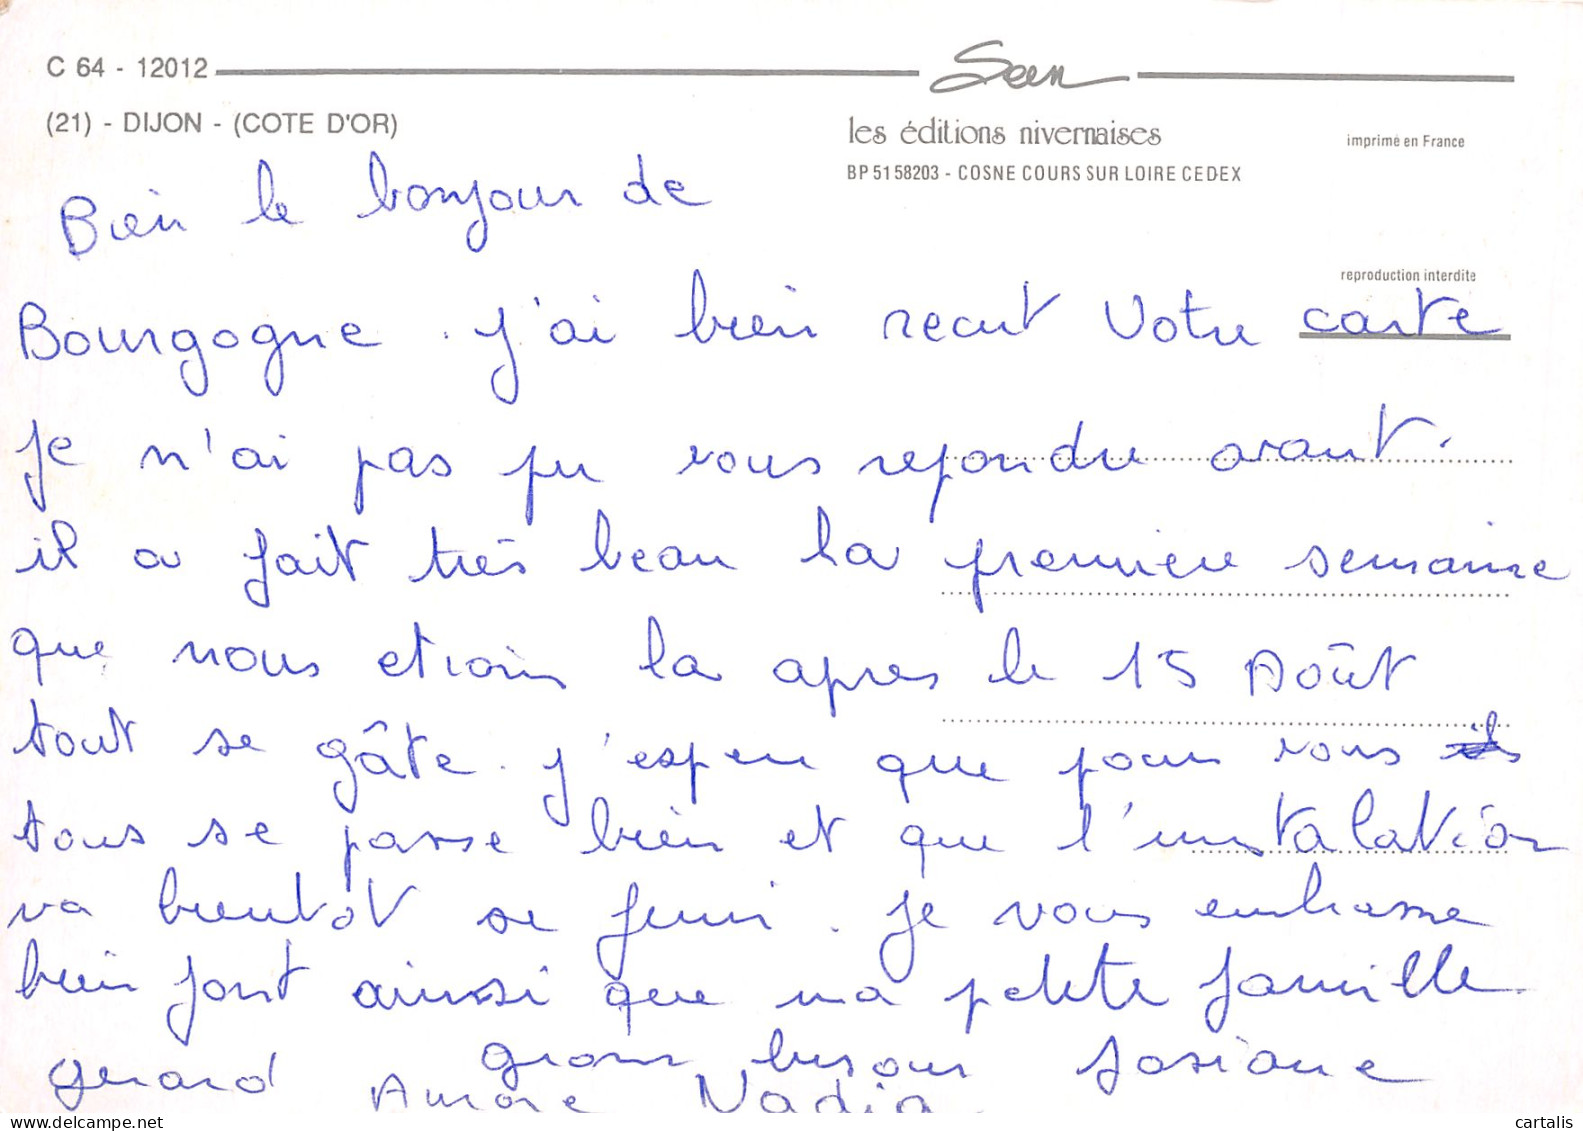 C 64 - 12012
Seen
(21) - DIJON - (COTE D'OR)
les éditions nivernaises
imprimé en France
BP 51 58203 - COSNE COURS SUR LOIRE CEDEX
reproduction interdite
Bien le bonjour de
Bourgogne. j'ai bien recut votre carte
je n'ai pas pu vous repondre avant.
il a fait très beau la premiere semaine
que nous etions la apres le 15 Août
tout se gâte. j'espere que pour vous
tous se passe bien et que l'instalation
va bientot se finir. je vous embrasse
bien fort ainssi que ma petite famille
gros bisous Josiane
gerard Aurore Nadia
cartalis